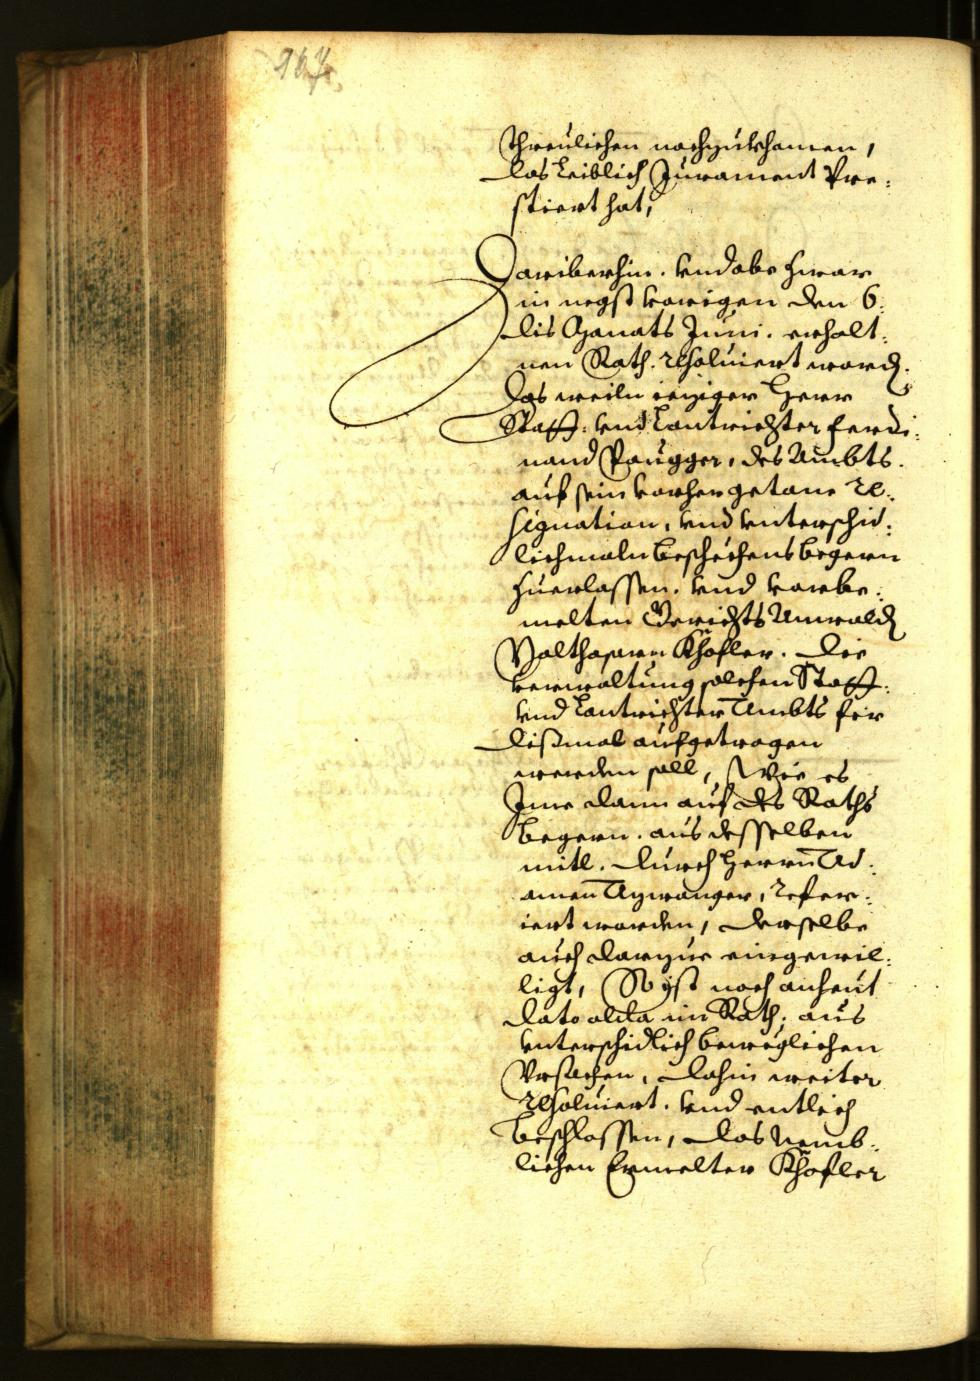 threulichen nachzukhomen,
das Leiblich Jurament Pre¬
stiert hat,
Dariberhin. vnd obe zwar
in negst vorigen den 6.
dis Monats Juni. erhalt¬
nen Rath. resoluiert word.
das weiln ieziger Herr
Statt: vnd Lantrichter Ferdi¬
nand Paugger, des Ambts.
auf sein vorher getane Re¬
signation, vnd vnterschid¬
lichmaln beschechens begern
zuerlassen. vnd vorbe¬
melten Gerichts Anwald
Balthasarn Khofler. die
verwaltung solchen Statt¬
vnd Lantrichter Ambts fir
dißmal aufgetragen
werden soll, Wie es
Ime dann auf des Raths
begern. aus desselben
mitl. durch Herrn Ad¬
amen Ayrwanger, refer¬
iert worden, derselbe
auch darzue eingewil¬
ligt, So ist noch anheut
dato alda im Rath, aus
vnterschidlich beweglichen
Vrsachen, dahin weiter
resoluiert. vnd entlich
beschlossen, das nemb¬
lichen Ermelter Khofler